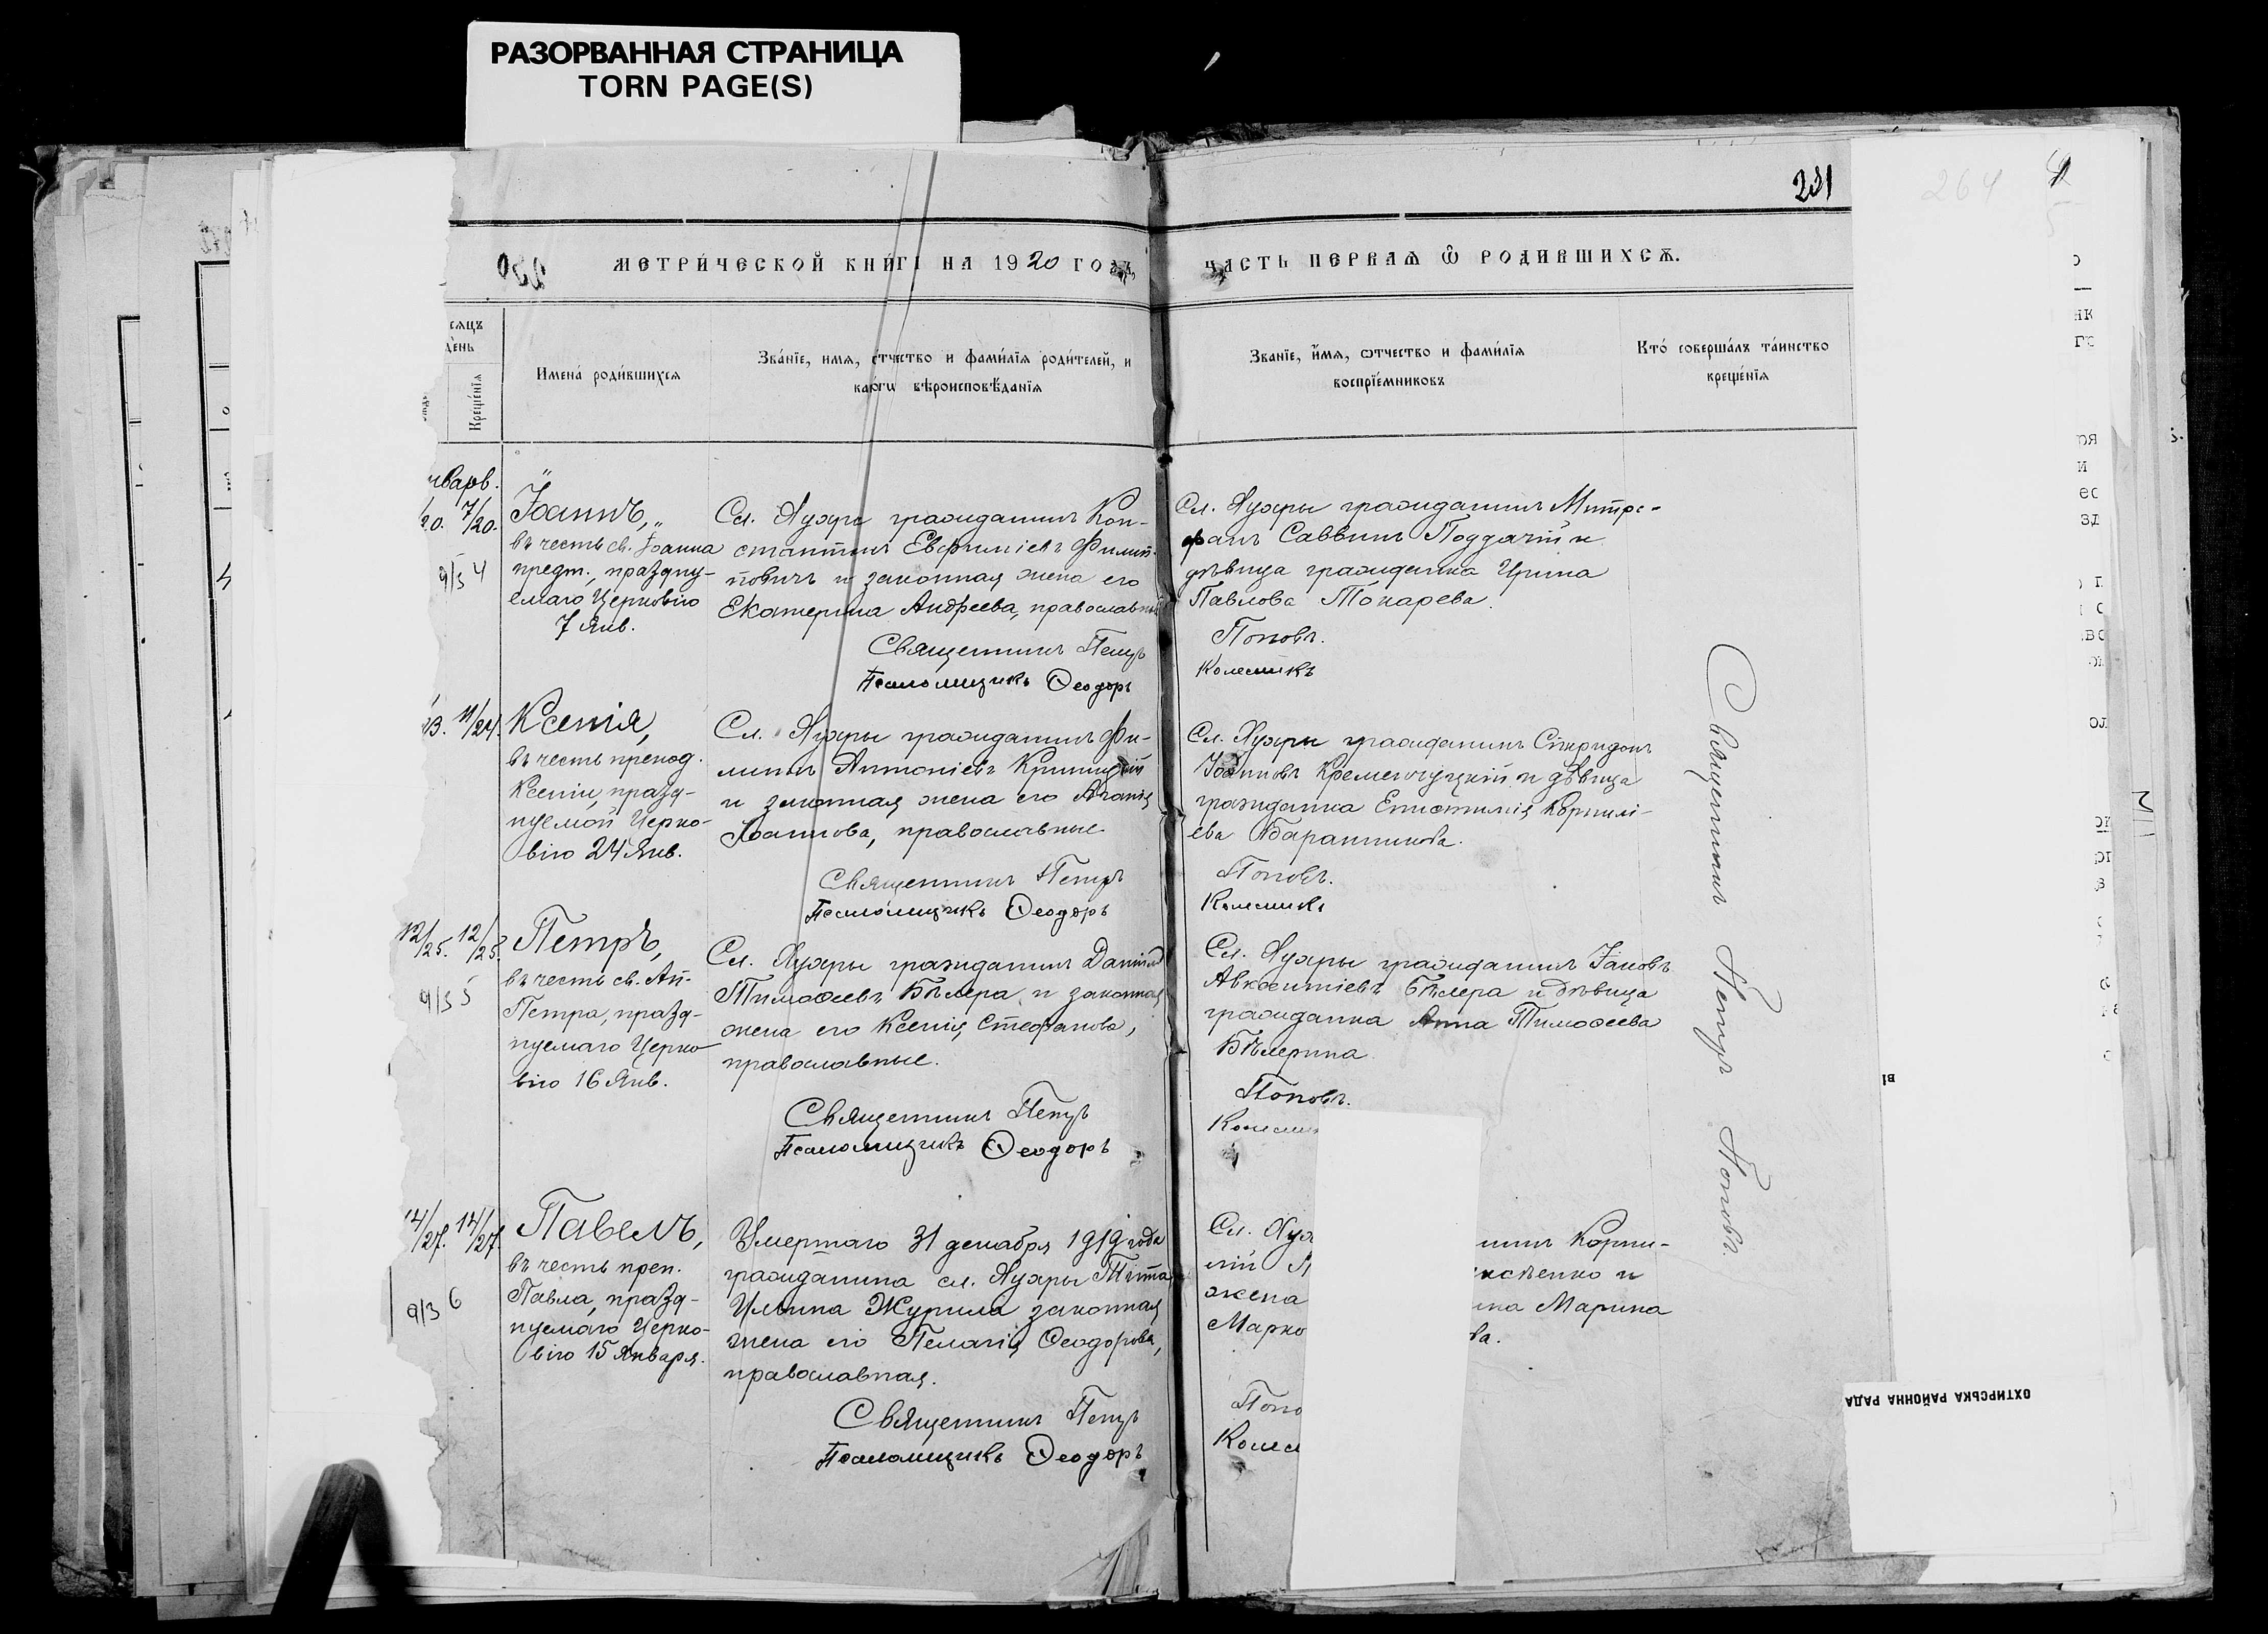 РАЗОРВАННАЯ СТРАНИЦА
TORN PAGE(S)
231
264
МЕТРИ́ЧЕСКОЙ КНИ́ГИ НА 1920 ГОДЪ,
ЧАСТЬ ПЕРВАѦ Ѡ РОДИВШИХСѦ.
сяцъ
де́нь
Креще́нїѧ
Имена́ роди́вшихсѧ
Зва́нїе, имѧ, о́тчество и фами́лїѧ роди́телей, и
како́гѡ вѣроисповѣ́данїѧ
Званїе, и́мѧ, ѡтчество и фами́лїѧ
воспрїе́мниковъ
Кто́ соверша́лъ та́инство
креще́нїѧ
нварь.
20. 7/20.
Іоаннъ,
въ честь св. Іоанна
предт., праздну-
емаго Церковію
7 Янв.
9/3 4
Сл. Хухры гражданинъ Кон-
стантинъ Евфиміевъ Филип-
повичъ и законная жена его
Екатерина Андреева, православные
Священникъ Петръ
Псаломщикъ Ѳеодоръ
Сл. Хухры гражданинъ Митро-
фанъ Саввинъ Поддачій и
дѣвица гражданка Ирина
Павлова Токарева.
Поповъ.
Колесникъ
11/24.
Ксенія,
въ честь препод.
Ксеніи, празд-
нуемой Церко-
вію 24 Янв.
Сл. Хухры гражданинъ Фи-
липпъ Антоніевъ Криницкій
и законная жена его Агафія
Іоаннова, православные.
Священникъ Петръ
Псаломщикъ Ѳеодоръ
Сл. Хухры гражданинъ Спиридонъ
Іоанновъ Кременчуцкій и дѣвица
гражданка Епистимія Корнилі-
ева Баранникова.
Поповъ.
Колесникъ
12/25. 12/25.
Петръ,
въ честь св. Ап.
Петра, празд-
нуемаго Церко-
вію 16 Янв.
9/3 5
Сл. Хухры гражданинъ Даніилъ
Тимоѳеевъ Бѣлера и законная
жена его Ксенія Стефанова,
православные.
Священникъ Петръ
Псаломщикъ Ѳеодоръ
Сл. Хухры гражданинъ Іаковъ
Авксентіевъ Бѣлера и дѣвица
гражданка Анна Тимоѳеева
Бѣлерина
Поповъ.
Колесник
14/27. 14/27.
Павелъ,
въ честь преп.
Павла, празд-
нуемаго Церко-
вію 15 Января.
9/3 6
Умершаго 31 декабря 1919 года
гражданина сл. Хухры Тита
Ильина Журила законная
жена его Пелагія Ѳеодорова,
православная.
Священникъ Петръ
Псаломщикъ Ѳеодоръ
Сл. Хух нинъ Корни-
лій
жена на Марина
Марко ва.
Попо
Колес
Священникъ Петръ Поповъ.
ОХТИРСЬКА РАЙОННА РАДА